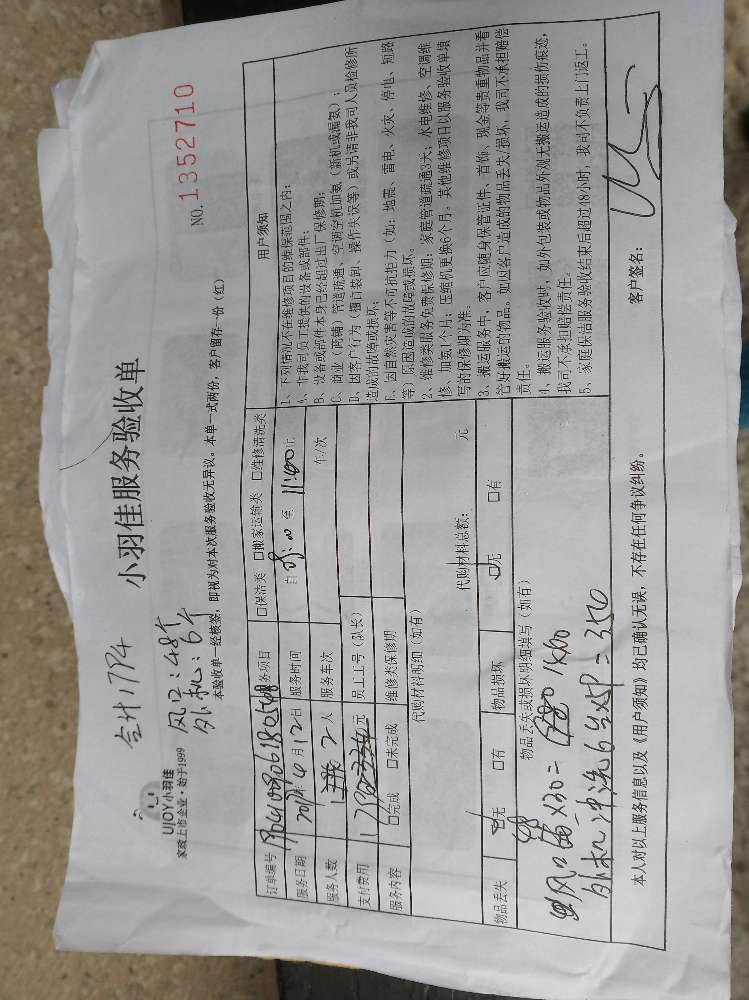 合计1794
风口:48个
外机:6个
UJOY小羽佳
家政上市企业·始于1999
小羽佳服务验收单
NO.1352710
本验收单一经核签，即视为对本次服务验收无异议。本单一式两份，客户留存一份（红）
订单编号
服务项目 □保洁类 □搬家运输类 □维修清洗类
服务日期 月12日 服务时间 自 至 11:00止
服务人数 2人 服务车次 车/次
支付费用 元 员工工号（队长）
服务内容 □完成 □未完成 维修类保修期
代购材料明细（如有）
代购材料总额： 元
物品丢失 □无 □有 物品损坏 □无 □有
物品丢失或损坏明细填写（如有）
风口 ×30=
外机冲洗6台
用户须知
1、下列情况不在维修项目的维保范围之内：
A、非我司员工提供的设备或部件；
B、设备或部件本身已经超过出厂保修期；
C、商业（商铺）管道疏通、空调空机加氨（新机或漏氨）；
D、因客户行为（擅自装卸、操作失误等）或另请非我司人员检修所
造成的故障或损坏；
E、因自然灾害等不可抗拒力（如：地震、雷电、火灾、停电、短路
等）原因造成的故障或损坏。
2、维修类服务免费保修期：家庭管道疏通3天；水电维修、空调维
修、加氨1个月；压缩机更换6个月。其他维修项目以服务验收单填
写的保修期为准。
3、搬运服务中，客户应随身保管证件、首饰、现金等贵重物品并看
管好搬运的物品。如因客户造成的物品丢失/损坏，我司不承担赔偿
责任。
4、搬运服务验收时，如外包装或物品外观无搬运造成的损伤痕迹，
我司不承担赔偿责任。
5、家庭保洁服务验收结束后超过48小时，我司不负责上门返工。
本人对以上服务信息以及《用户须知》均已确认无误，不存在任何争议纠纷。
客户签名：